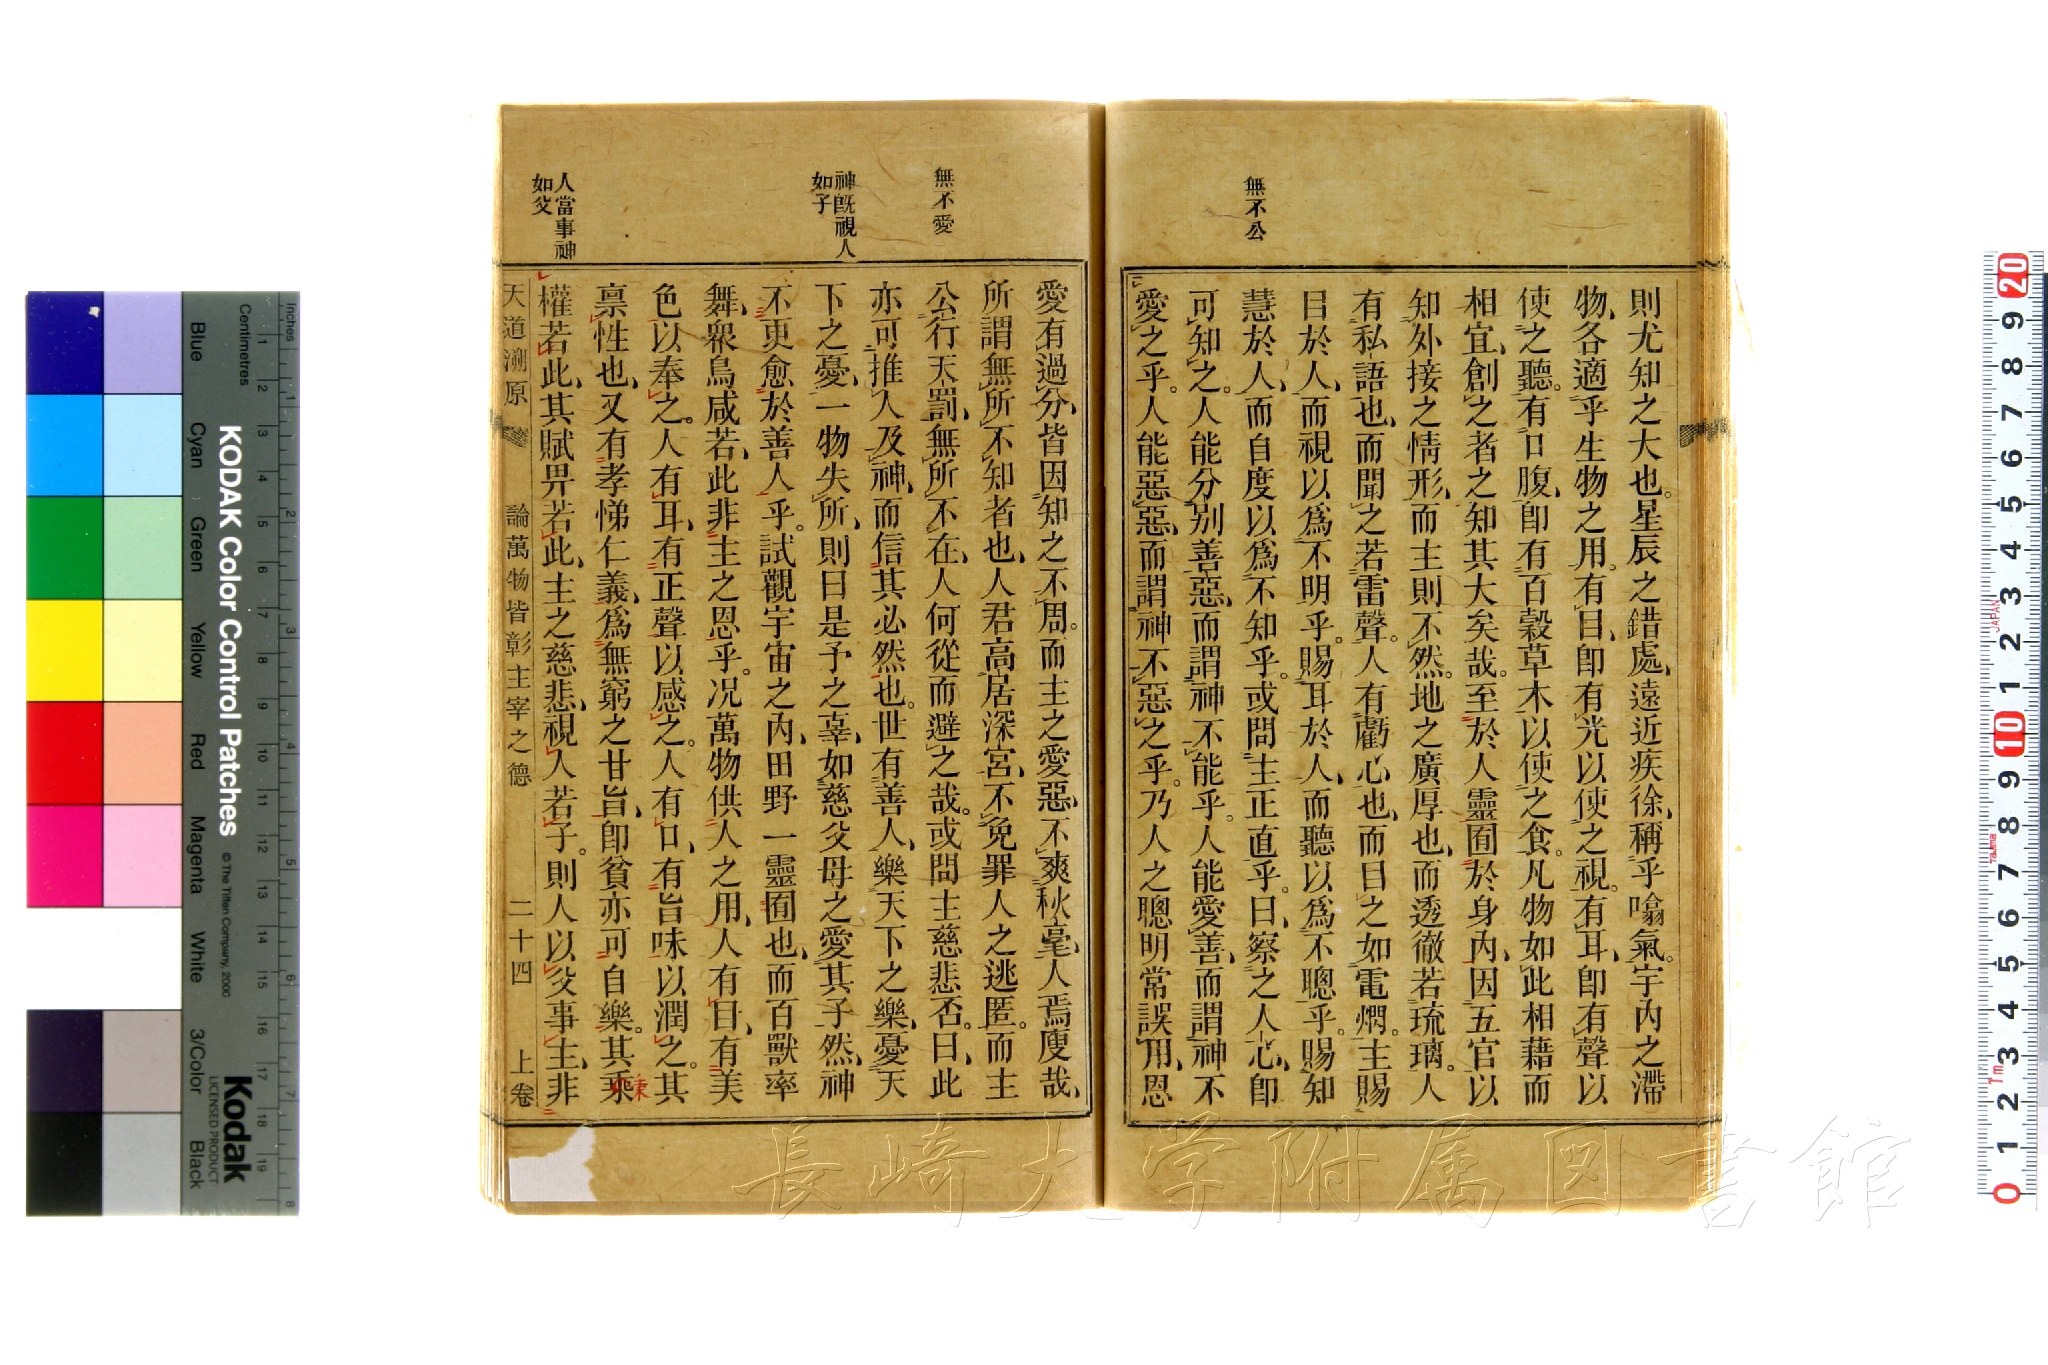 無不公
則尤知之大也。星辰之錯處、遠近疾徐、稱乎噏氣。宇內之滯
物、各適乎生物之用。有目、卽有光以使之視。有耳、卽有聲以
使之聽。有口腹、卽有百穀草木以使之食。凡物如此相藉而
相宜、創之者之知其大矣哉。至於人靈囿於身內、因五官以
知外接之情形、而主則不然。地之廣厚也、而透徹若琉璃。人
有私語也、而聞之若雷聲。人有虧心也、而目之如電燗。主賜
目於人、而視以爲不明乎。賜耳於人、而聽以爲不聰乎。賜知
慧於人、而自度以爲不知乎。或問主正直乎。曰、察之人心、卽
可知之。人能分別善惡、而謂神不能乎。人能愛善、而謂神不
愛之乎。人能惡惡、而謂神不惡之乎。乃人之聰明常誤用、恩
無不愛
神旣視人
如子
人當事神
如父
愛有過分、皆因知之不周。而主之愛惡、不爽秋毫、人焉廋哉、
所謂無所不知者也、人君高居深宮、不免罪人之逃匿。而主
公行天罰、無所不在、人何從而避之哉。或問主慈悲否。曰、此
亦可推人及神、而信其必然也。世有善人、樂天下之樂、憂天
下之憂、一物失所、則曰是予之辜、如慈父母之愛其子然、神
不更愈於善人乎。試觀宇宙之內、田野一靈囿也、而百獸率
舞、衆鳥咸若、此非主之恩乎。况萬物供人之用、人有目、有美
色以奉之。人有耳、有正聲以感之。人有口、有旨味以潤之。其
禀性也、又有孝悌仁義、爲無窮之甘旨、卽貧亦可自樂。其乘
秉
權若此、其賦畀若此、主之慈悲、視人若子。則人以父事主、非
天道溯原 論萬物皆彰主宰之德 二十四 上卷
長崎大学附属図書館
KODAK Color Control Patches
© The Tiffen Company, 2000
Kodak
LICENSED PRODUCT
Inches
Centimetres
Blue
Cyan
Green
Yellow
Red
Magenta
White
3/Color
Black
JAPAN
Tajima